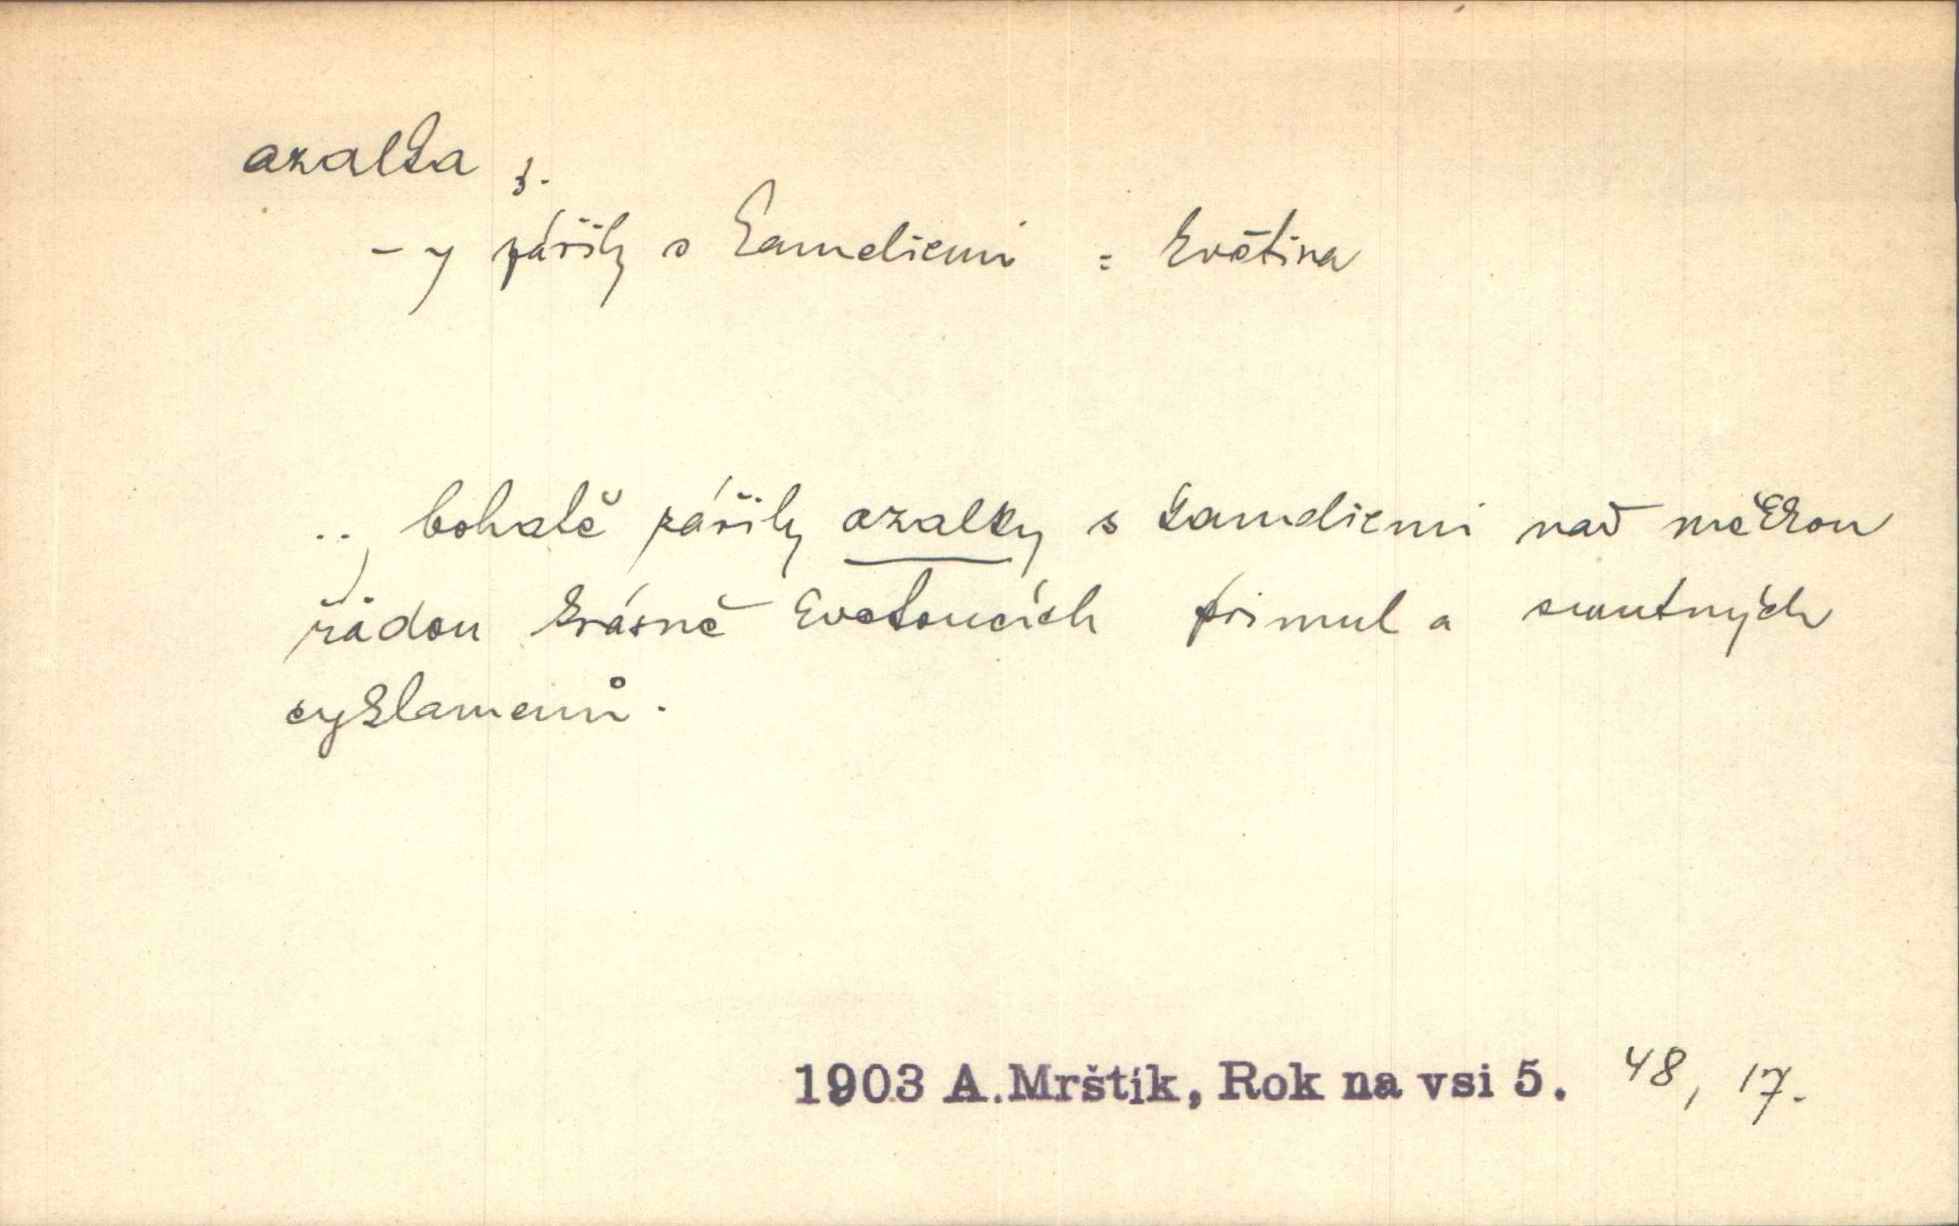 azalka ž.
- y zářily s kameliemi = květina
.., bohatě zářily azalky s kameliemi nad měkkou
řádou krásně kvetoucích primul a smutných
cyklamenů.
1903 A.Mrštík, Rok na vsi 5. 48, 17.